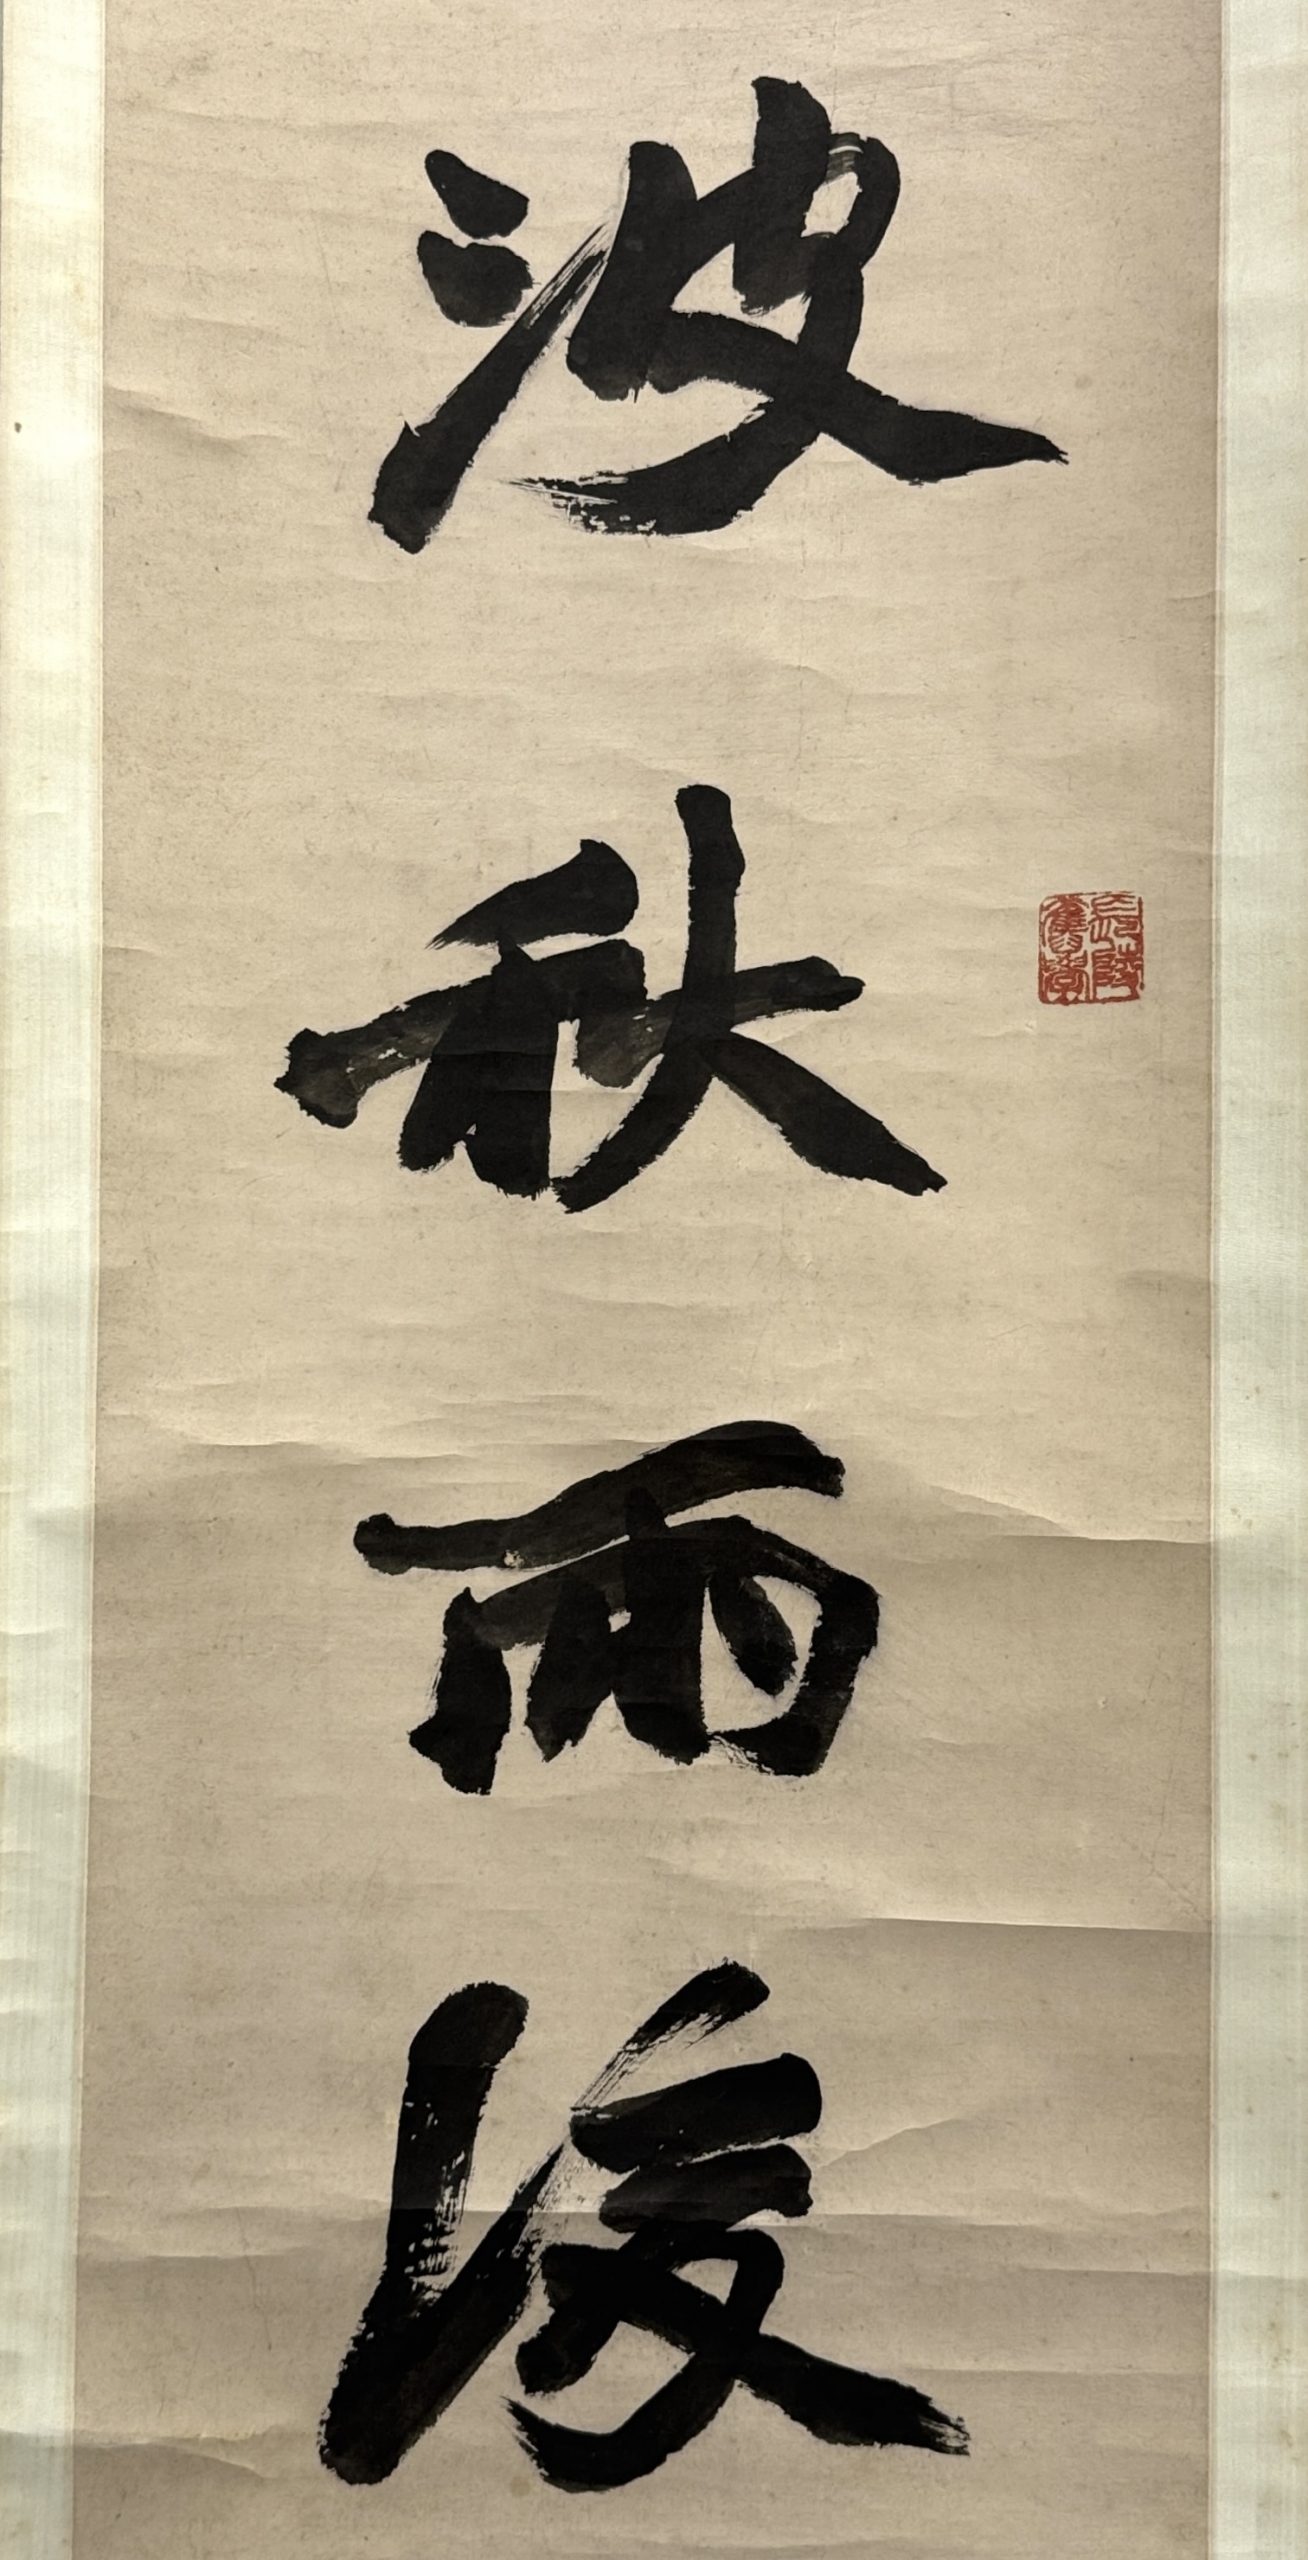 波秋雨後